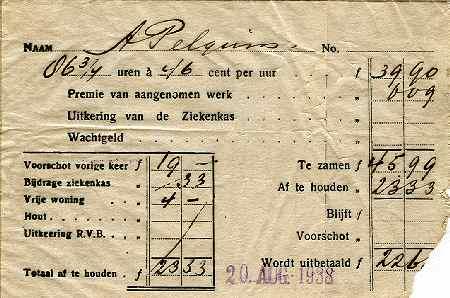 NAAM A Pelquin No.
86 3/4 uren à 46 cent per uur ƒ 39 90
Premie van aangenomen werk „ 6 09
Uitkering van de Ziekenkas „
Wachtgeld „
Voorschot vorige keer ƒ 19 -
Bijdrage ziekenkas „ 33
Vrije woning „ 4 -
Hout „
Uitkeering R.V.B. „
Totaal af te houden ƒ 23 33
Te zamen ƒ 45 99
Af te houden „ 23 33
Blijft ƒ
Voorschot „
Wordt uitbetaald ƒ 22 6
20 AUG 1938